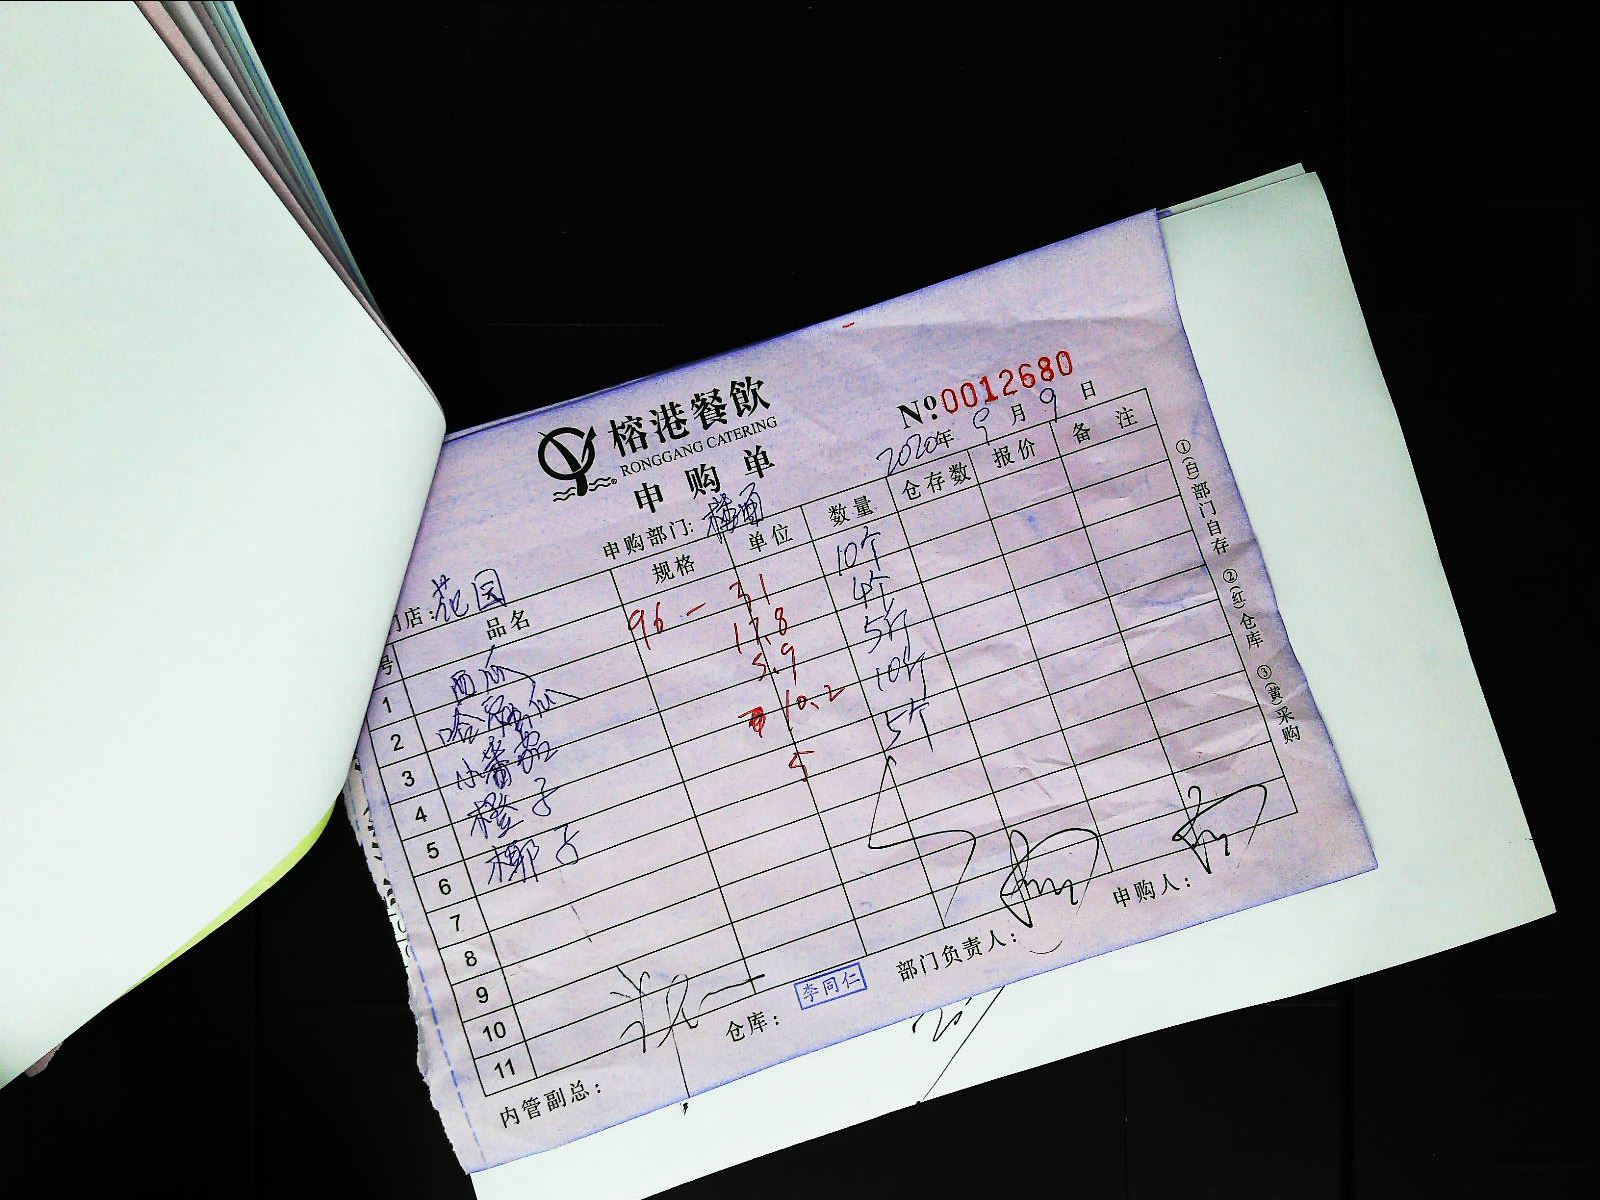 榕港餐飲
RONGGANG CATERING
申购单
№ 0012680
2020年 9月 9日
门店:花园
申购部门:楼面
号 品名 规格 单位 数量 仓存数 报价 备注
1 西瓜 96- 31 10个
2 哈密瓜 17.8 4个
3 小番茄 5.9 5斤
4 橙子 10.2 10斤
5 椰子 5 5个
6
7
8
9
10
11
内管副总:
仓库: 李同仁
部门负责人:
申购人:
①(白)部门自存 ②(红)仓库 ③(黄)采购